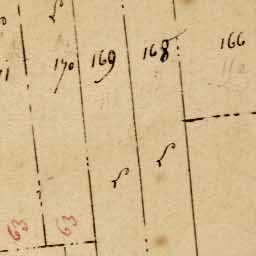 166
168
169
170
63
63